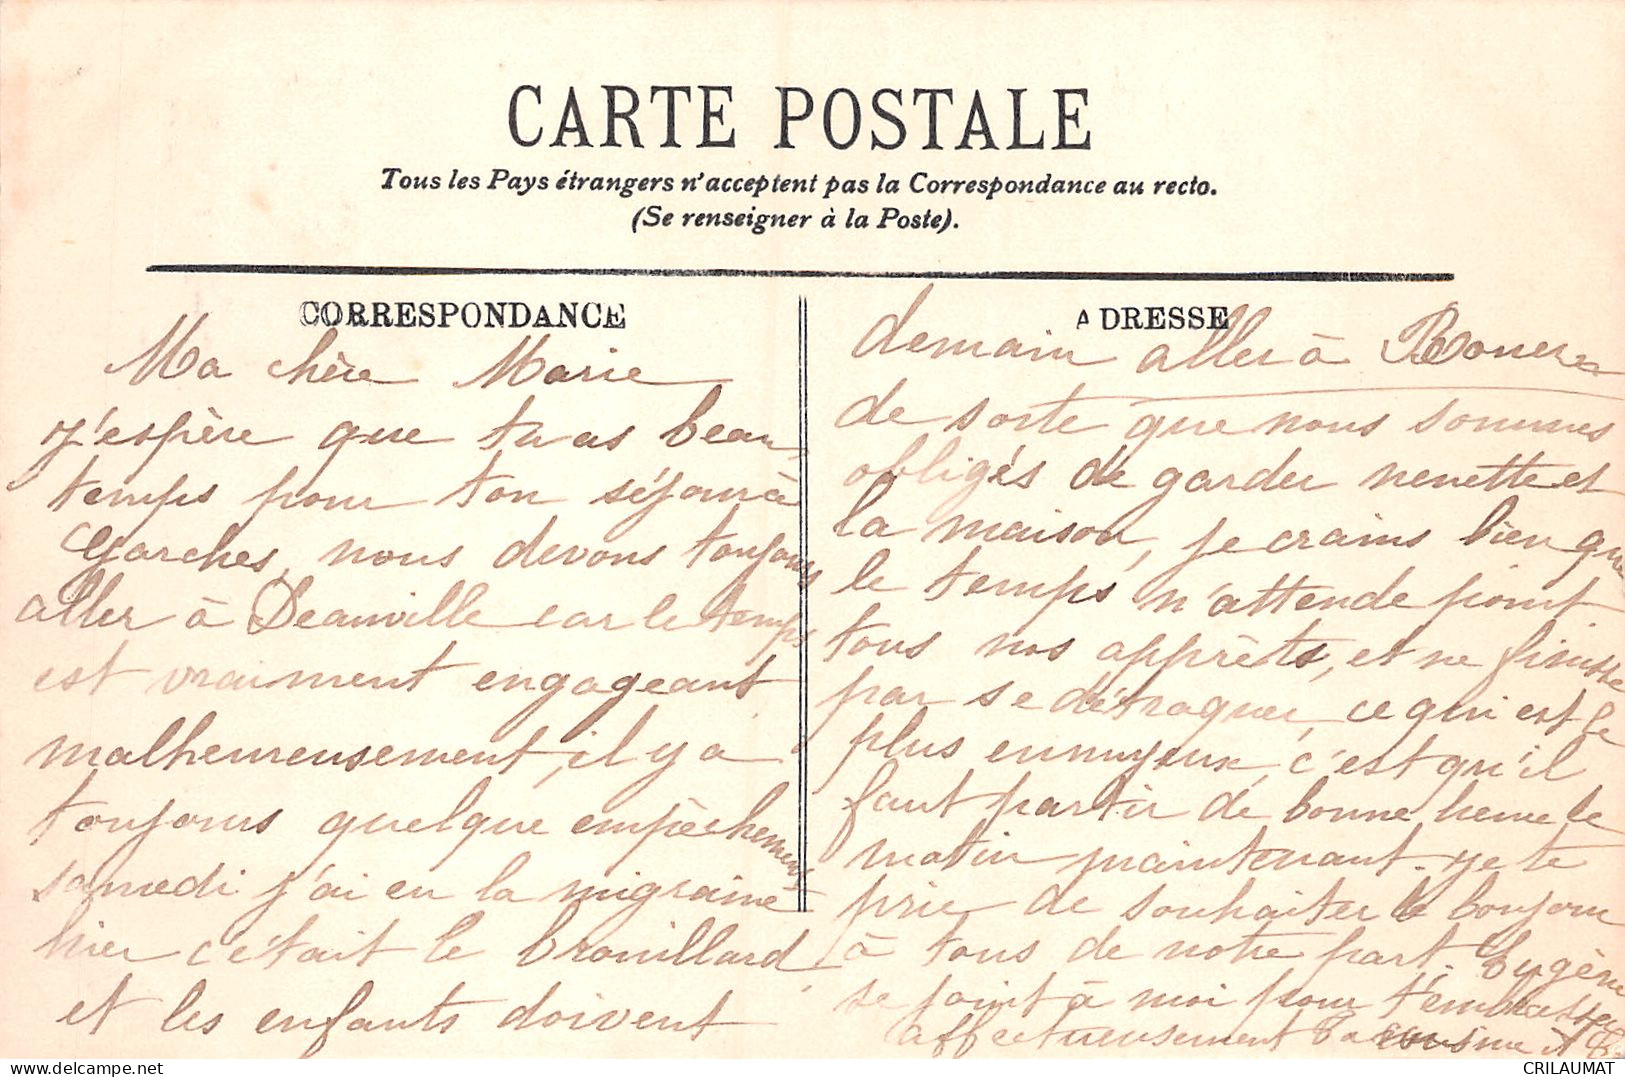 CARTE POSTALE
Tous les Pays étrangers n'acceptent pas la Correspondance au recto.
(Se renseigner à la Poste).
CORRESPONDANCE
Ma chère Marie
J'espère que tu as beau
temps pour ton séjour à
Garches, nous devons toujours
aller à Deauville car le temps
est vraiment engageant
malheureusement, il y a
toujours quelque empêchement
samedi j'ai eu la migraine
hier c'était le brouillard,
et les enfants doivent
ADRESSE
demain aller à Rouen
de sorte que nous sommes
obligés de garder nenette et
la maison, je crains bien que
le temps n'attende point
tous nos apprêts, et ne finisse
par se détraquer, ce qui est le
plus ennuyeux, c'est qu'il
faut partir de bonne heure le
matin maintenant. Je te
prie de souhaiter le bonjour
à tous de notre part. Eugène
se joint à moi pour t'embrasser
affectueusement
CRILAUMAT